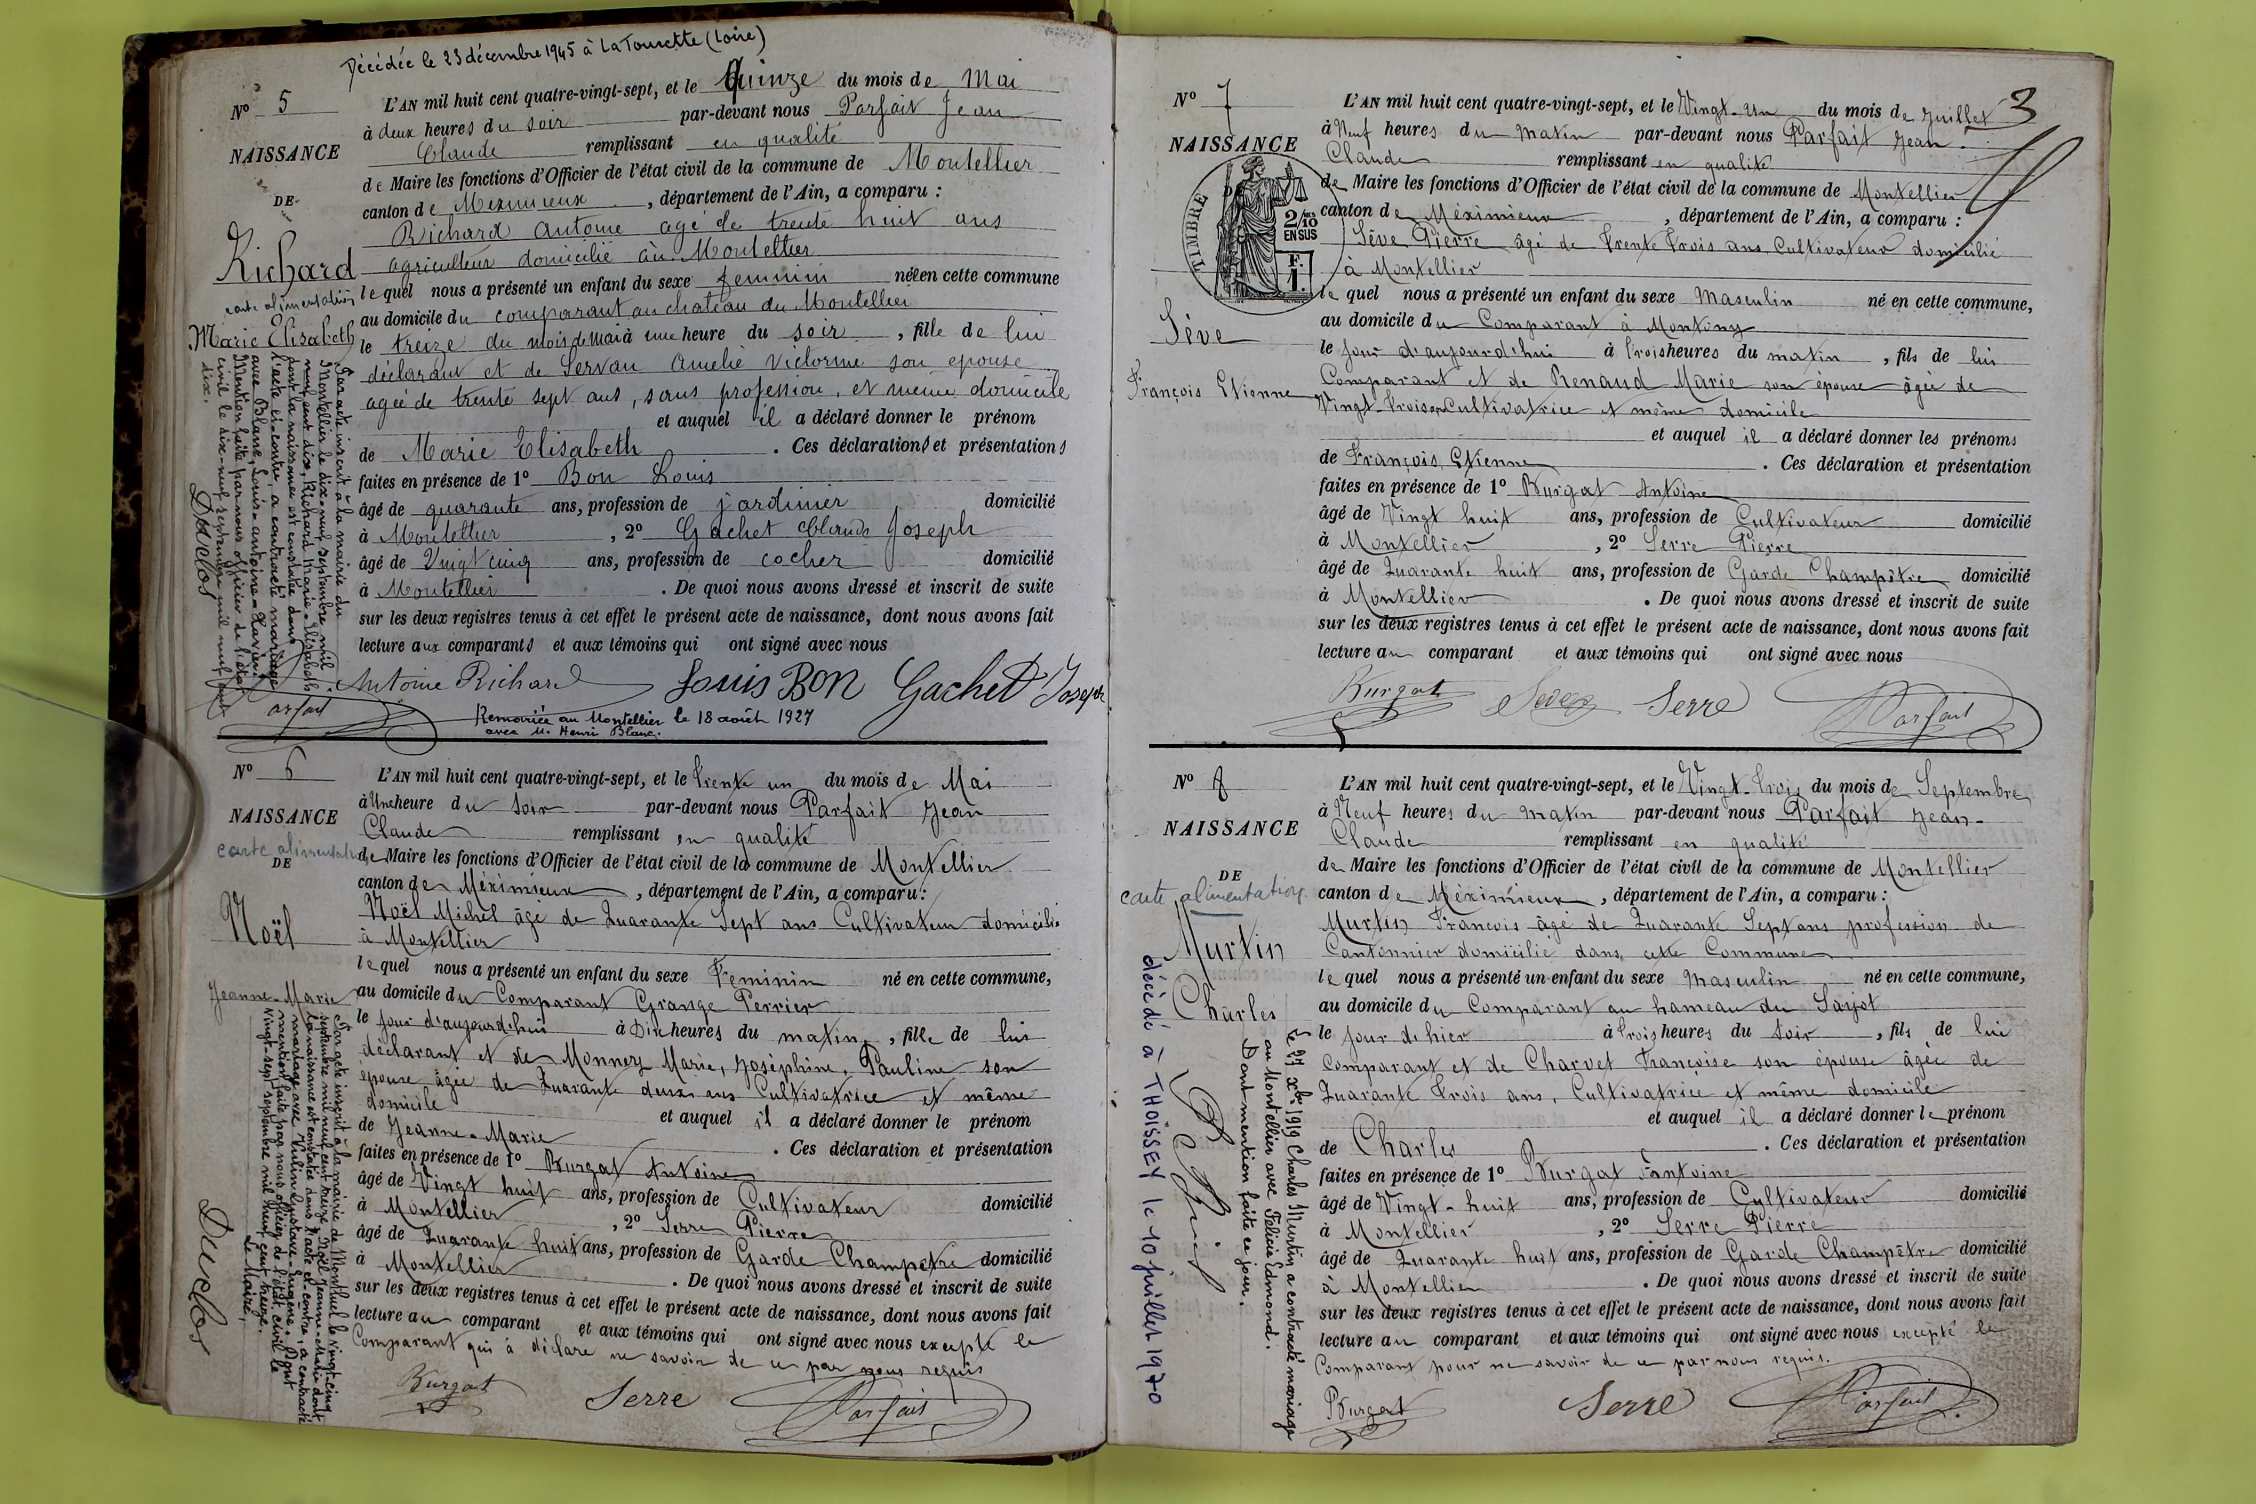 Décédée le 23 décembre 1945 à La Tourette (Loire)
N° 5
NAISSANCE
DE
Richard
carte alimentation
Marie Elisabeth
Par acte inscrit à la mairie du
Montellier le dix-neuf septembre mil
neuf cent dix, Richard Marie-Elisabeth
dont la naissance est constatée dans
l'acte ci-contre a contracté mariage
avec Blanc, Louis-antoine-Xavier.
Mention faite par nous officier de l'état
civil le dix-neuf septembre mil neuf cent
dix.
Duclos
L'AN mil huit cent quatre-vingt-sept, et le Quinze du mois de Mai
à deux heures du soir par-devant nous Parfait Jean
Claude remplissant en qualité
de Maire les fonctions d'Officier de l'état civil de la commune de Montellier
canton de Meximieux, département de l'Ain, a comparu :
Richard Antoine agé de trente huit ans
agriculteur domicilié au Montellier
lequel nous a présenté un enfant du sexe feminin née en cette commune
au domicile du comparant au chateau du Montellier
le treize du mois de Mai à une heure du soir, fille de lui
déclarant et de Servan Amelie Victorine son epouse
agée de trente sept ans, sans profession, et meme domicile
et auquel il a déclaré donner le prénom
de Marie Elisabeth. Ces déclarations et présentations
faites en présence de 1° Bon Louis
âgé de quarante ans, profession de jardinier domicilié
à Montellier, 2° Gachet Claude Joseph
âgé de Vingt cinq ans, profession de cocher domicilié
à Montellier. De quoi nous avons dressé et inscrit de suite
sur les deux registres tenus à cet effet le présent acte de naissance, dont nous avons fait
lecture aux comparants et aux témoins qui ont signé avec nous
Antoine Richard Louis Bon Gachet Joseph
Parfait
Remariée au Montellier le 18 août 1927
avec M. Henri Blanc.
N° 6
NAISSANCE
carte alimentation
DE
Noël
Jeanne-Marie
Par acte inscrit à la mairie de Montluel le vingt-cinq
septembre mil neuf cent treize, Noël Jeanne-Marie dont
la naissance est constatée dans l'acte ci-contre, a contracté
mariage avec Gustave-Eugène. Dont
mention faite par nous officier de l'état civil le
vingt-sept septembre mil neuf cent treize.
Le Maire,
Duclos
L'AN mil huit cent quatre-vingt-sept, et le Trente un du mois de Mai
à Une heure du Soir par-devant nous Parfait Jean
Claude remplissant en qualité
de Maire les fonctions d'Officier de l'état civil de la commune de Montellier
canton de Méximieux, département de l'Ain, a comparu :
Noël Michel âgé de Quarante Sept ans Cultivateur domicilié
à Montellier
lequel nous a présenté un enfant du sexe Feminin né en cette commune,
au domicile du Comparant Grange Perrier
le jour d'aujourd'hui à Dix heures du matin, fille de lui
déclarant et de Monnez Marie, Joséphine, Pauline son
épouse âgée de Quarante deux ans Cultivatrice et même
domicile et auquel il a déclaré donner le prénom
de Jeanne-Marie. Ces déclaration et présentation
faites en présence de 1° Burgat Antoine
âgé de Vingt huit ans, profession de Cultivateur domicilié
à Montellier, 2° Serre Pierre
âgé de Quarante huit ans, profession de Garde Champêtre domicilié
à Montellier. De quoi nous avons dressé et inscrit de suite
sur les deux registres tenus à cet effet le présent acte de naissance, dont nous avons fait
lecture au comparant et aux témoins qui ont signé avec nous excepté le
Comparant qui à déclare ne savoir de ce par nous requis
Burgat Serre Parfait
3
N° 7
NAISSANCE
DE
TIMBRE
2/10 EN SUS
F. 1.
Sève
François Etienne
L'AN mil huit cent quatre-vingt-sept, et le Vingt-Un du mois de Juillet
à Neuf heures du matin par-devant nous Parfait Jean-
Claude remplissant en qualité
de Maire les fonctions d'Officier de l'état civil de la commune de Montellier
canton de Méximieux, département de l'Ain, a comparu :
Sève Pierre âgé de Trente Trois ans Cultivateur domicilié
à Montellier
lequel nous a présenté un enfant du sexe Masculin né en cette commune,
au domicile du Comparant à Montony
le jour d'aujourd'hui à Trois heures du matin, fils de lui
Comparant et de Renaud Marie son épouse âgée de
Vingt-Trois ans Cultivatrice et même domicile
et auquel il a déclaré donner les prénoms
de François Etienne. Ces déclaration et présentation
faites en présence de 1° Burgat Antoine
âgé de Vingt huit ans, profession de Cultivateur domicilié
à Montellier, 2° Serre Pierre
âgé de Quarante huit ans, profession de Garde Champêtre domicilié
à Montellier. De quoi nous avons dressé et inscrit de suite
sur les deux registres tenus à cet effet le présent acte de naissance, dont nous avons fait
lecture au comparant et aux témoins qui ont signé avec nous
Burgat Seve Serre Parfait
N° 8
NAISSANCE
DE
carte alimentation
Murtin
Charles
Le 27 Xbre 1919 Charles Murtin a contracté mariage
au Montellier avec Félicie Edmond.
Dont mention faite ce jour.
décédé à THOISSEY le 10 juillet 1970
L'AN mil huit cent quatre-vingt-sept, et le Vingt-Trois du mois de Septembre
à Neuf heures du matin par-devant nous Parfait Jean-
Claude remplissant en qualité
de Maire les fonctions d'Officier de l'état civil de la commune de Montellier
canton de Méximieux, département de l'Ain, a comparu :
Murtin Francois âgé de Quarante Sept ans profession de
Cantonnier domicilié dans cette Commune
lequel nous a présenté un enfant du sexe masculin né en cette commune,
au domicile du Comparant au hameau du Sayot
le jour de hier à Trois heures du Soir, fils de lui
Comparant et de Charvet Françoise son épouse âgée de
Quarante Trois ans, Cultivatrice et même domicile
et auquel il a déclaré donner le prénom
de Charles. Ces déclaration et présentation
faites en présence de 1° Burgat Antoine
âgé de Vingt-huit ans, profession de Cultivateur domicilié
à Montellier, 2° Serre Pierre
âgé de Quarante huit ans, profession de Garde Champêtre domicilié
à Montellier. De quoi nous avons dressé et inscrit de suite
sur les deux registres tenus à cet effet le présent acte de naissance, dont nous avons fait
lecture au comparant et aux témoins qui ont signé avec nous excepté le
Comparant pour ne savoir de ce par nous requis.
Burgat Serre Parfait